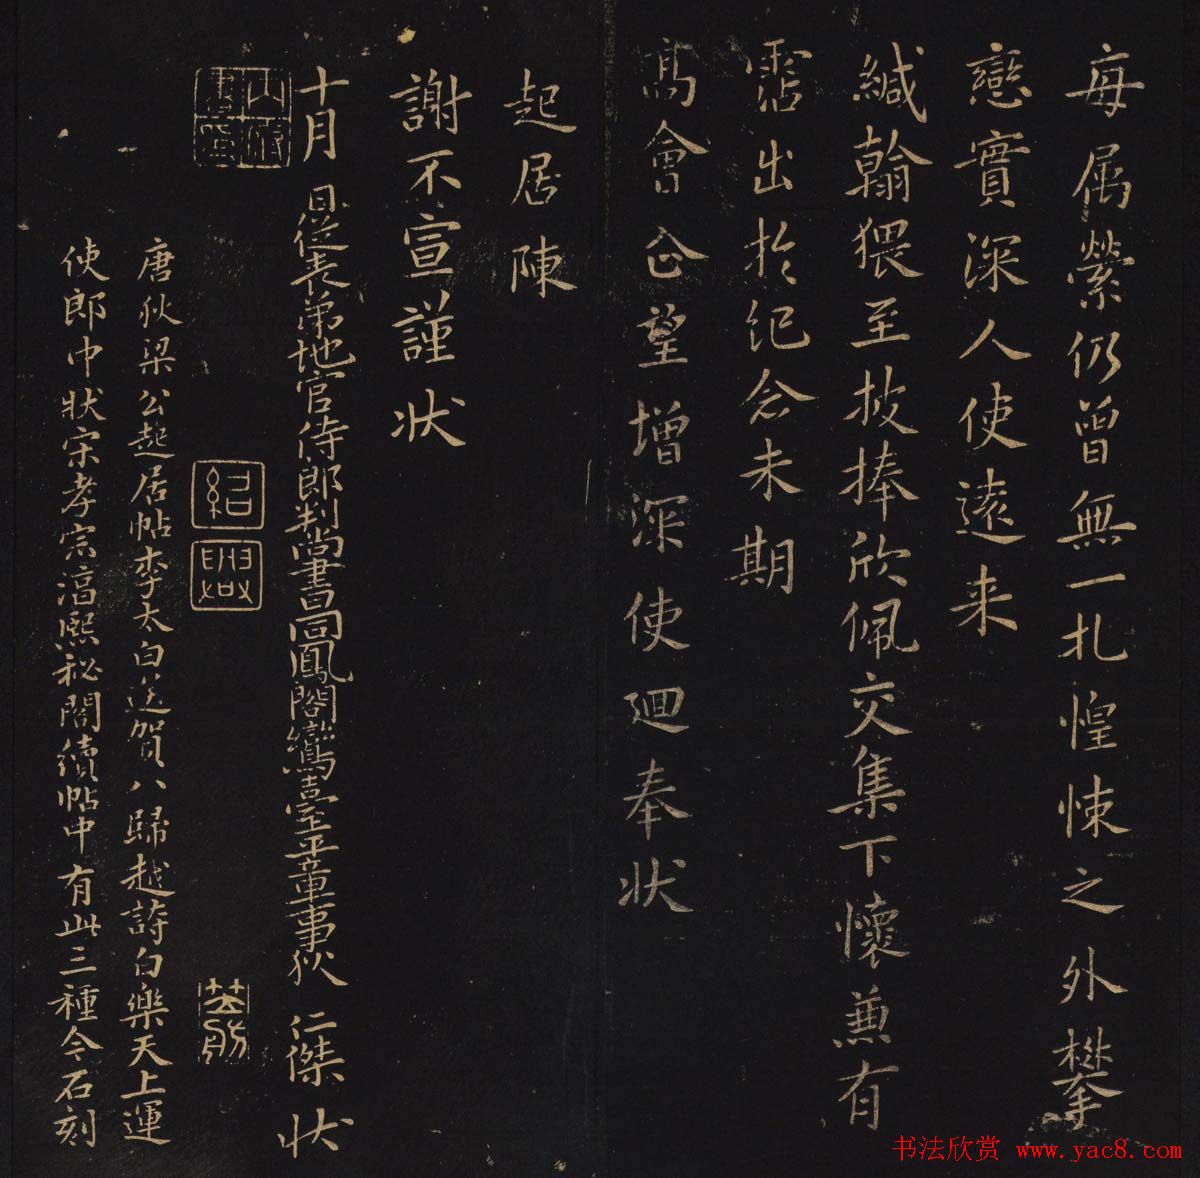 每属縈仍曾無一札惶悚之外攀
戀實深人使遠来
緘翰猥至披捧欣佩交集下懷兼有
霑出於紀念未期
髙會企望增深使迴奉状
起居陳
謝不宣謹状
十月 日從表弟地官侍郎判尚書同鳳閣鸞臺平章事狄 仁傑 状
紹興
唐狄梁公起居帖李太白送賀八歸越詩白樂天上運
使郎中状宋孝宗淳熙祕閣續帖中有此三種今石刻
书法欣赏 www.yac8.com